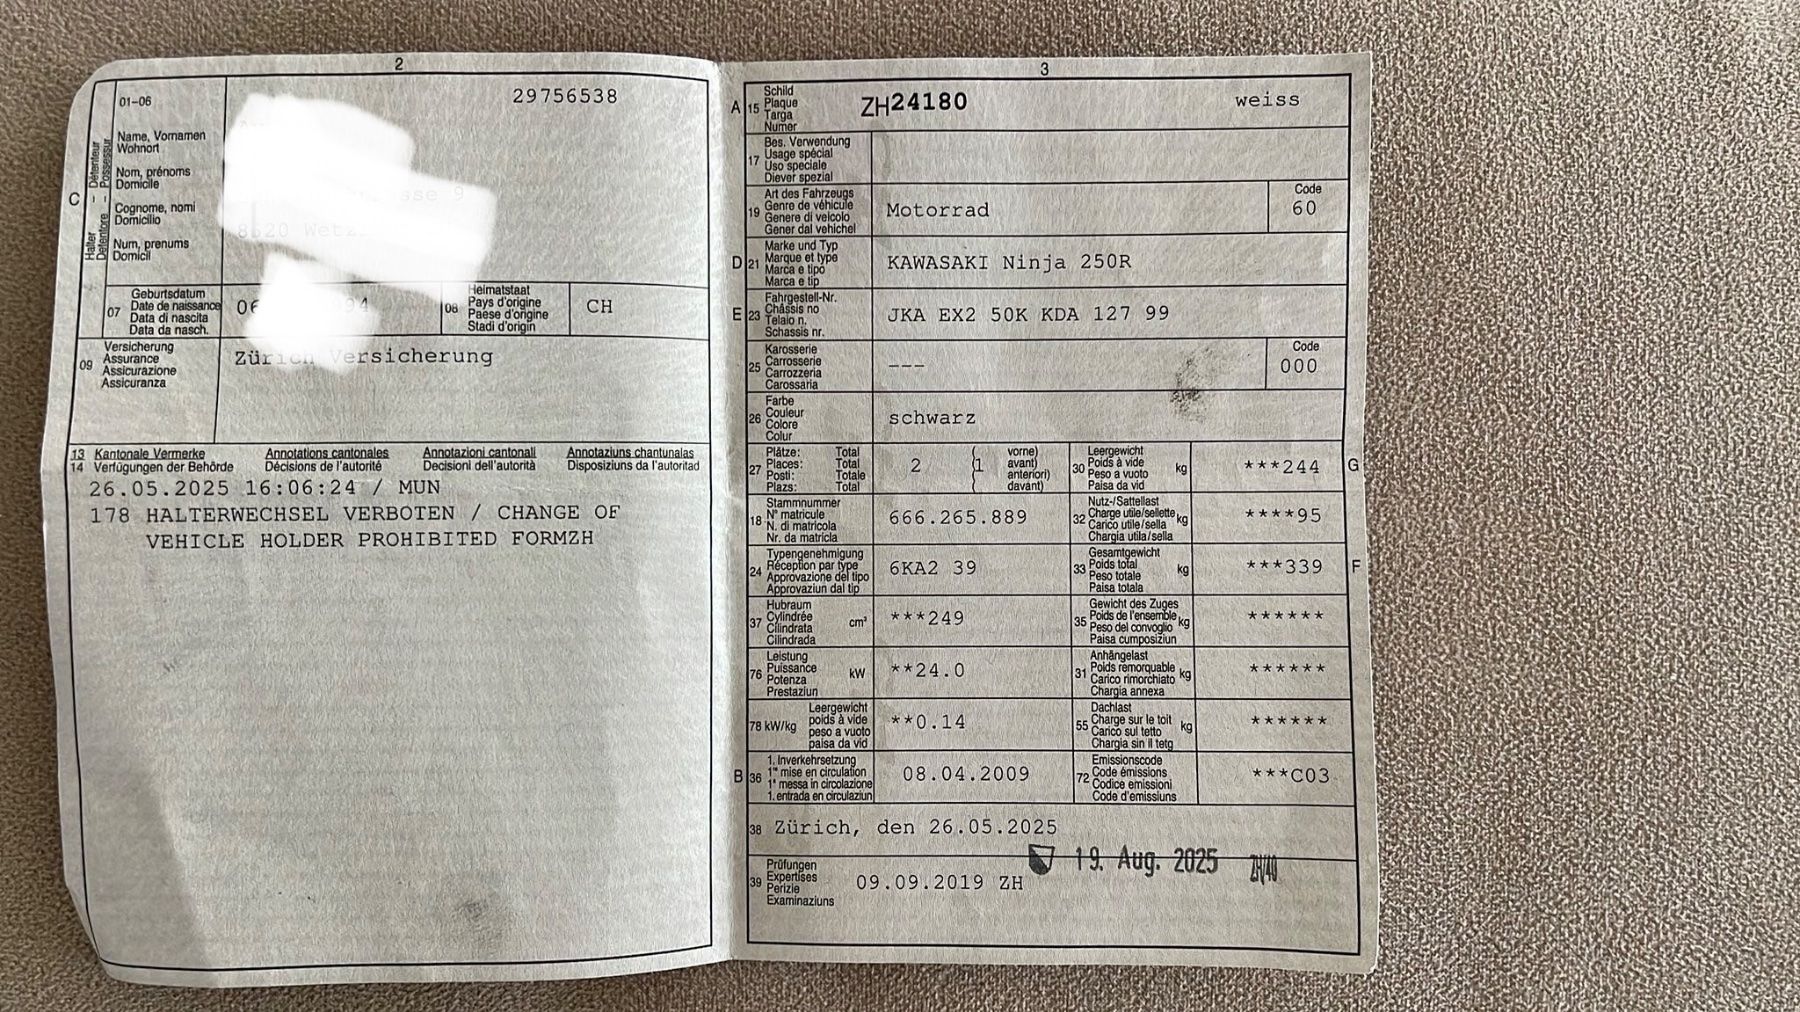 2
01-06
29756538
C
Halter Détenteur
Detentore - Possessur
Name, Vornamen
Wohnort
Nom, prénoms
Domicile
Cognome, nomi
Domicilio
Num, prenums
Domicil
sse 9
07
Geburtsdatum
Date de naissance
Data di nascita
Data da nasch.
08
Heimatstaat
Pays d'origine
Paese d'origine
Stadi d'origin
CH
09
Versicherung
Assurance
Assicurazione
Assicuranza
Zürich Versicherung
13 Kantonale Vermerke Annotations cantonales Annotazioni cantonali Annotaziuns chantunalas
14 Verfügungen der Behörde Décisions de l'autorité Decisioni dell'autorità Disposiziuns da l'autoritad
26.05.2025 16:06:24 / MUN
178 HALTERWECHSEL VERBOTEN / CHANGE OF
VEHICLE HOLDER PROHIBITED FORMZH
3
A 15
Schild
Plaque
Targa
Numer
ZH24180 weiss
17
Bes. Verwendung
Usage spécial
Uso speciale
Diever spezial
19
Art des Fahrzeugs
Genre de véhicule
Genere di veicolo
Gener dal vehichel
Motorrad
Code
60
D 21
Marke und Typ
Marque et type
Marca e tipo
Marca e tip
KAWASAKI Ninja 250R
E 23
Fahrgestell-Nr.
Châssis no
Telaio n.
Schassis nr.
JKA EX2 50K KDA 127 99
25
Karosserie
Carrosserie
Carrozzeria
Carossaria
---
Code
000
26
Farbe
Couleur
Colore
Colur
schwarz
27
Plätze: Total
Places: Total
Posti: Totale
Plazs: Total
2 (1
vorne)
avant)
anteriori)
davant)
30
Leergewicht
Poids à vide
Peso a vuoto
Paisa da vid
kg
***244
G
18
Stammnummer
N° matricule
N. di matricola
Nr. da matricla
666.265.889
32
Nutz-/Sattellast
Charge utile/sellette
Carico utile/sella
Chargia utila/sella
kg
****95
24
Typengenehmigung
Réception par type
Approvazione del tipo
Approvaziun dal tip
6KA2 39
33
Gesamtgewicht
Poids total
Peso totale
Paisa totala
kg
***339
F
37
Hubraum
Cylindrée
Cilindrata
Cilindrada
cm³
***249
35
Gewicht des Zuges
Poids de l'ensemble
Peso del convoglio
Paisa cumposiziun
kg
******
76
Leistung
Puissance
Potenza
Prestaziun
kW
**24.0
31
Anhängelast
Poids remorquable
Carico rimorchiato
Chargia annexa
kg
******
78 kW/kg
Leergewicht
poids à vide
peso a vuoto
paisa da vid
**0.14
55
Dachlast
Charge sur le toit
Carico sul tetto
Chargia sin il tetg
kg
******
B 36
1. Inverkehrsetzung
1re mise en circulation
1a messa in circolazione
1. entrada en circulaziun
08.04.2009
72
Emissionscode
Code émissions
Codice emissioni
Code d'emissiuns
***C03
38 Zürich, den 26.05.2025
39
Prüfungen
Expertises
Perizie
Examinaziuns
09.09.2019 ZH
19. Aug. 2025 ZH/40